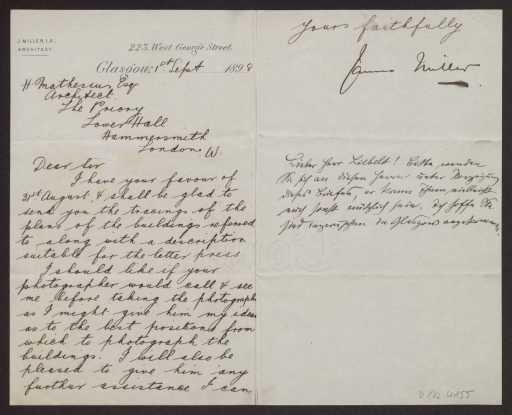 J. MILLER, I.A.
ARCHITECT.
223, West George Street.
Glasgow, 1st Sept 1898
H Mathesius Esq
Architect.
The Priory
Lower Mall
Hammersmith
London W.
Dear Sir
I have your favour of
31st August, & shall be glad to
send you the tracings of the
plans of the buildings referred
to along with a description
suitable for the letter press
I should like if your
photographer would call & see
me before taking the photographs
as I might give him my ideas
as to the best positions from
which to photograph the
buildings. I will also be
pleased to give him any
further assistance I can
Yours faithfully
James Miller
Lieber Herr Liebelt! Bitte wenden
Sie sich an diesen Herrn unter
dieses Briefes, er kann Ihnen vielleicht
auch sonst nützlich sein. Ich hoffe Sie
sind inzwischen in Glasgow angekommen.